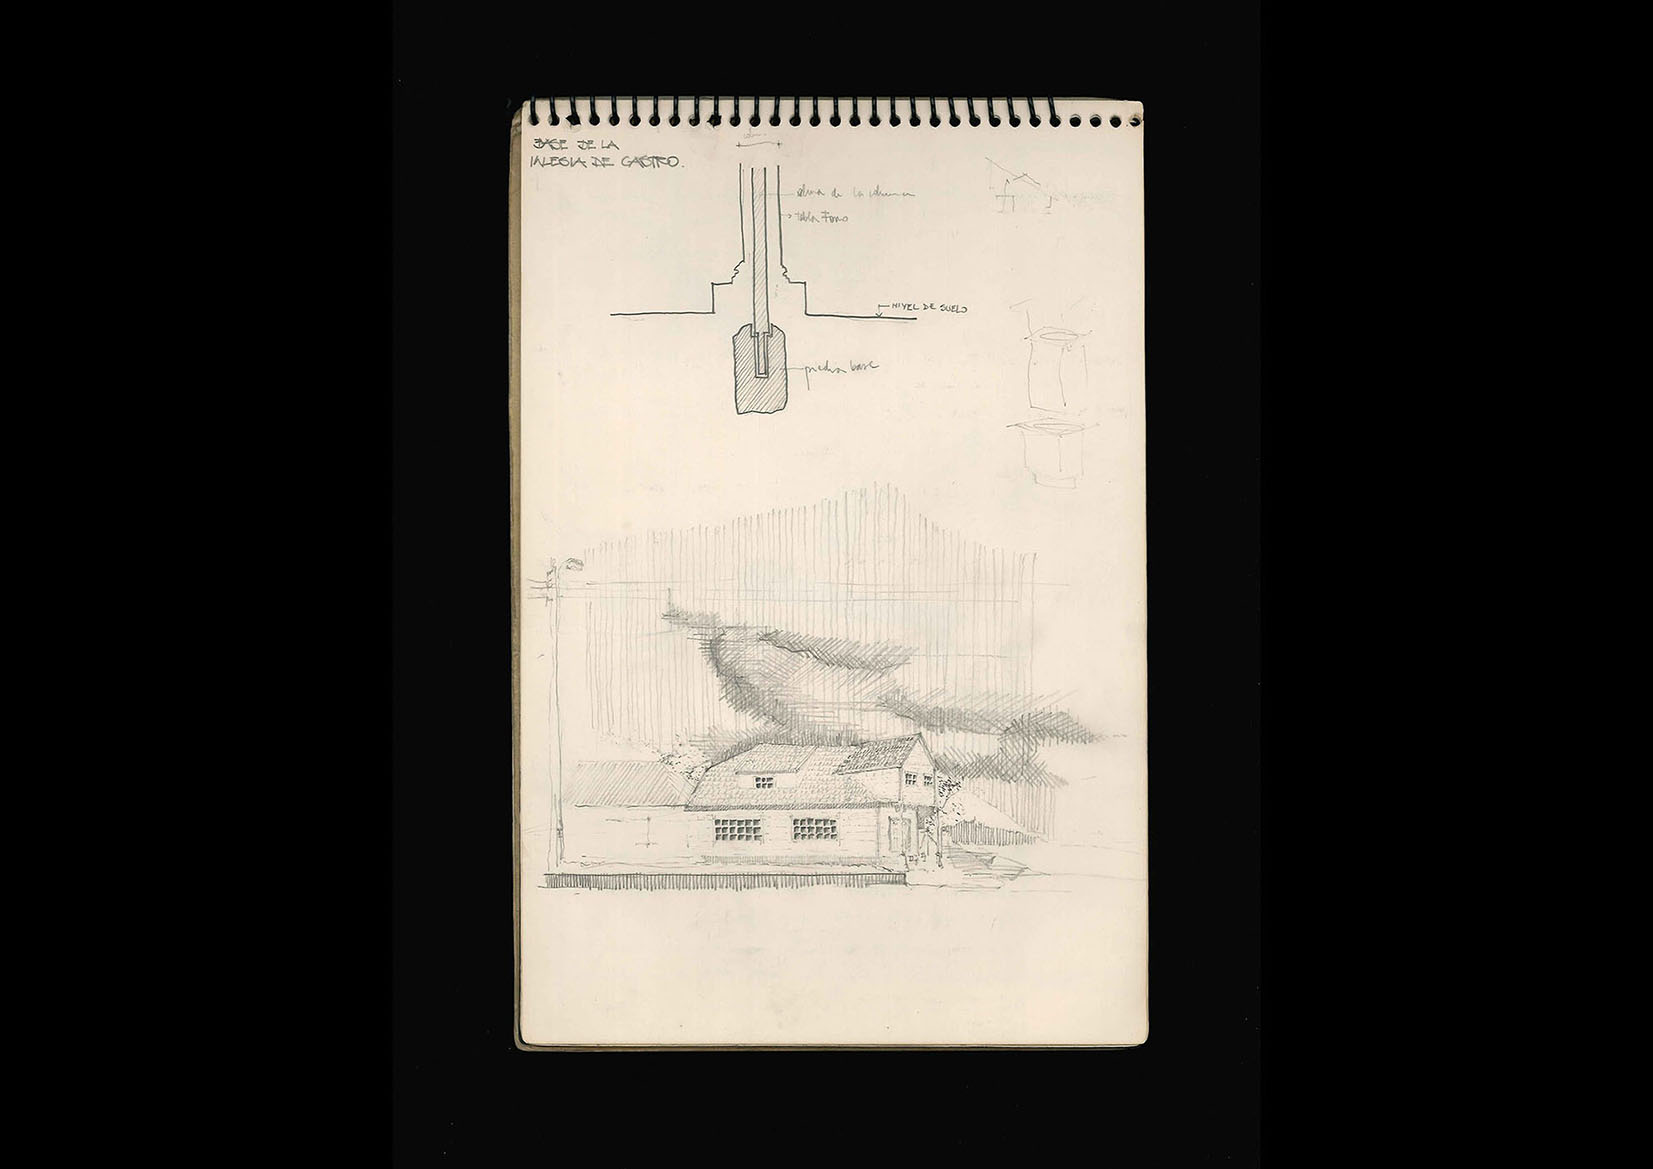 BASE DE LA
IGLESIA DE CASTRO.
alma de la columna
tabla Forro
NIVEL DE SUELO
piedra base